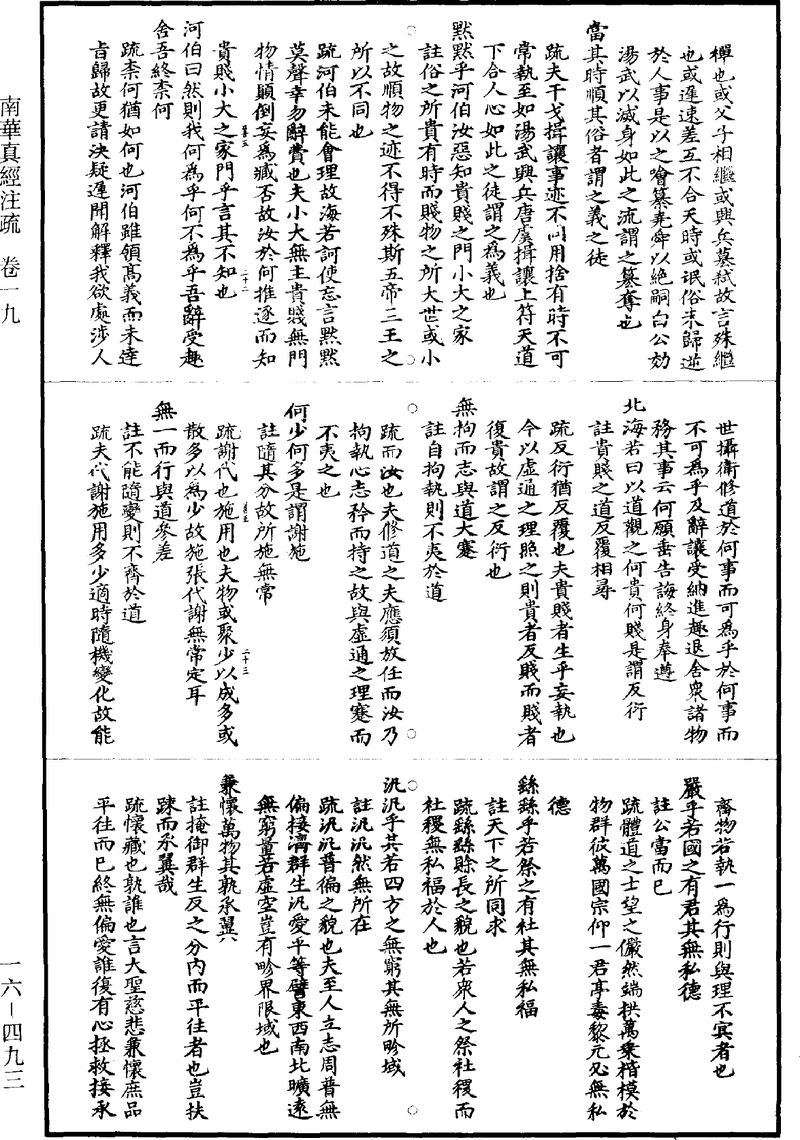 南華真經注疏　卷一九
禪也或父子相繼或興兵篡弒故言殊繼
也或遲速差互不合天時或氓俗未歸逆
於人事是以之噲篡堯舜以絶嗣白公効
湯武以滅身如此之流謂之篡奪也
當其時順其俗者謂之義之徒
疏夫干戈揖讓事迹不同用捨有時不可
常執至如湯武興兵唐虞揖讓上符天道
下合人心如此之徒謂之為義也
默默乎河伯汝惡知貴賤之門小大之家
註俗之所貴有時而賤物之所大世或小
之故順物之迹不得不殊斯五帝三王之
所以不同也
疏河伯未能會理故海若訶使忘言默默
莫聲幸勿辭費也夫小大無主貴賤無門
物情顛倒妄為臧否故汝於何推逐而知
貴賤小大之家門乎言其不知也
河伯曰然則我何為乎何不為乎吾辭受趣
舍吾終柰何
疏柰何猶如何也河伯雖領髙義而未達
旨歸故更請決疑遲開解釋我欲處涉人
世攝衛修道於何事而可為乎於何事而
不可為乎及辭讓受納進趣退舍衆諸物
務其事云何願垂告誨終身奉遵
北海若曰以道觀之何貴何賤是謂反衍
註貴賤之道反覆相尋
疏反衍猶反覆也夫貴賤者生乎妄執也
今以虛通之理照之則貴者反賤而賤者
復貴故謂之反衍也
無拘而志與道大蹇
註自拘執則不夷於道
疏而汝也夫修道之夫應須放任而汝乃
拘執心志矜而持之故與虛通之理蹇而
不夷之也
何少何多是謂謝施
註隨其分故所施無常
疏謝代也施用也夫物或聚少以成多或
散多以為少故施張代謝無常定耳
無一而行與道參差
註不能隨變則不齊於道
疏夫代謝施用多少適時隨機變化故能
齊物若執一為行則與理不冥者也
嚴乎若國之有君其無私德
註公當而已
疏體道之士望之儼然端拱萬乗楷模於
物群彼萬國宗仰一君亭毒黎元必無私
德
繇繇乎若祭之有社其無私福
註天下之所同求
疏繇繇賒長之貌也若衆人之祭社稷而
社稷無私福於人也
汎汎乎其若四方之無窮其無所畛域
註汎汎然無所在
疏汎汎普徧之貌也夫至人立志周普無
偏接濟群生汎愛平等譬東西南北曠遠
無窮量若虛空豈有畛界限域也
兼懷萬物其孰承翼
註掩御群生反之分内而平往者也豈扶
踈而承翼哉
疏懷藏也孰誰也言大聖慈悲兼懷庶品
平往而已終無偏愛誰復有心拯救接承
一六—四九三